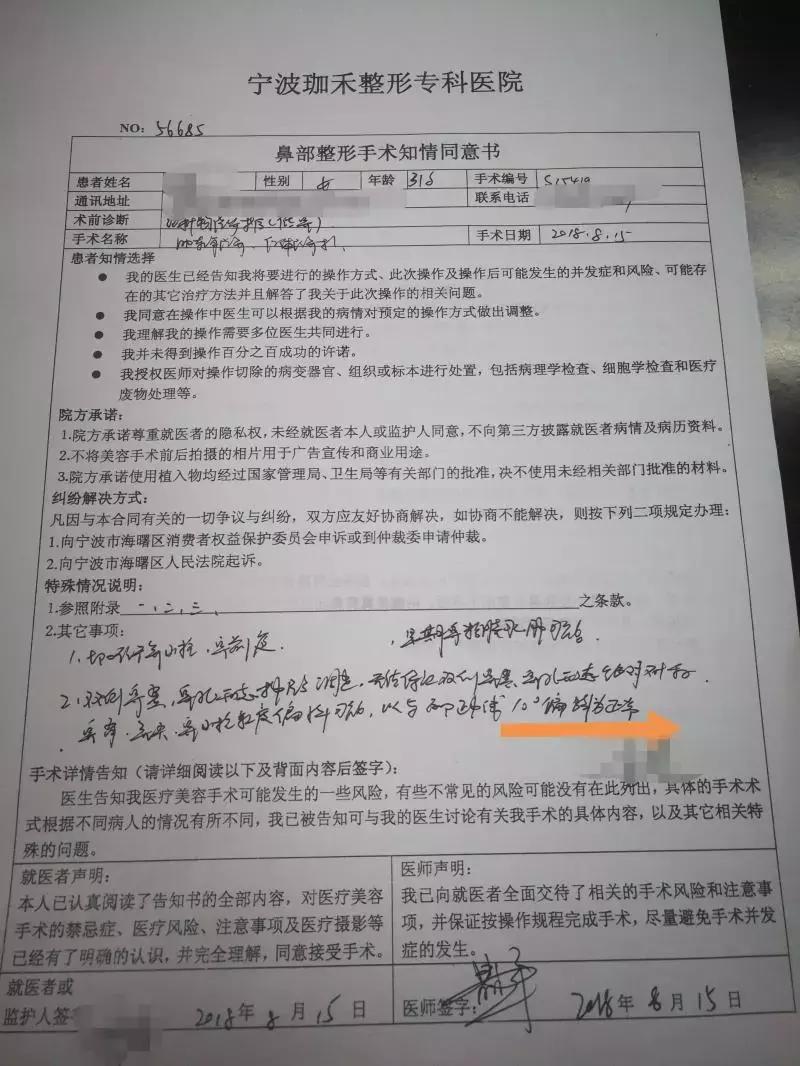 宁波珈禾整形专科医院
NO: 56685
鼻部整形手术知情同意书
患者姓名 性别 女 年龄 31岁 手术编号 S15419
通讯地址 联系电话
术前诊断
手术名称 手术日期 2018.8.15
患者知情选择
● 我的医生已经告知我将要进行的操作方式、此次操作及操作后可能发生的并发症和风险、可能存
在的其它治疗方法并且解答了我关于此次操作的相关问题。
● 我同意在操作中医生可以根据我的病情对预定的操作方式做出调整。
● 我理解我的操作需要多位医生共同进行。
● 我并未得到操作百分之百成功的许诺。
● 我授权医师对操作切除的病变器官、组织或标本进行处置，包括病理学检查、细胞学检查和医疗
废物处理等。
院方承诺：
1.院方承诺尊重就医者的隐私权，未经就医者本人或监护人同意，不向第三方披露就医者病情及病历资料。
2.不将美容手术前后拍摄的相片用于广告宣传和商业用途。
3.院方承诺使用植入物均经过国家管理局、卫生局等有关部门的批准，决不使用未经相关部门批准的材料。
纠纷解决方式：
凡因与本合同有关的一切争议与纠纷，双方应友好协商解决，如协商不能解决，则按下列二项规定办理：
1.向宁波市海曙区消费者权益保护委员会申诉或到仲裁委申请仲裁。
2.向宁波市海曙区人民法院起诉。
特殊情况说明：
1.参照附录 一，二，三， 之条款。
2.其它事项：
1. 切口
2. 双侧鼻 鼻孔 调整，无法保证双侧 鼻孔 绝对对称
鼻小柱 偏斜可能，以与面正中线 10°偏斜为正常
手术详情告知（请详细阅读以下及背面内容后签字）：
医生告知我医疗美容手术可能发生的一些风险，有些不常见的风险可能没有在此列出，具体的手术术
式根据不同病人的情况有所不同，我已被告知可与我的医生讨论有关我手术的具体内容，以及其它相关特
殊的问题。
就医者声明：
本人已认真阅读了告知书的全部内容，对医疗美容
手术的禁忌症、医疗风险、注意事项及医疗摄影等
已经有了明确的认识，并完全理解，同意接受手术。
医师声明：
我已向就医者全面交待了相关的手术风险和注意事
项，并保证按操作规程完成手术，尽量避免手术并发
症的发生。
就医者或
监护人签 2018年 8 月 15 日
医师签字： 2018年 8月 15日